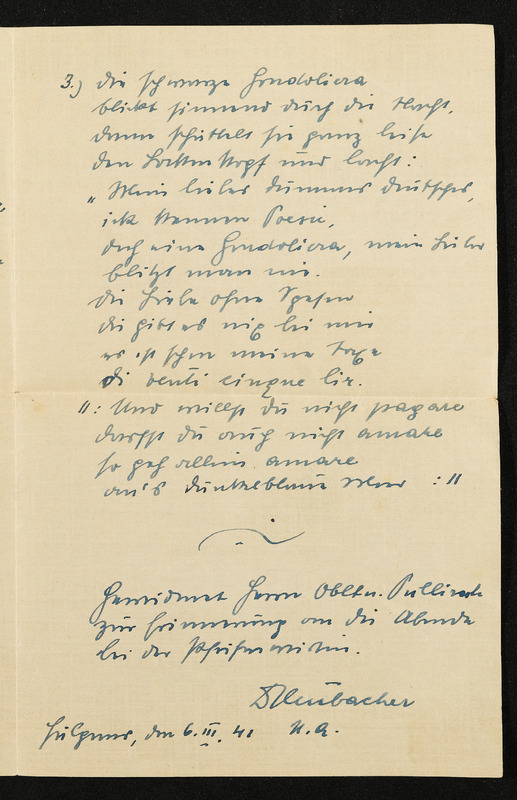 3.) die schwarze Gondoliera
blickt sinnend durch die Nacht,
dann schüttelt sie ganz leise
den Lockenkopf und lacht:
„Mein lieber dummes deutsches,
ick kennen Poesie,
doch eine Gondoliera, mein Lieber
blitzt man nie.
die Liebe ohne Spesen
die gibt es nix bei mir
es ist schon meine Taxe
di venti cinque lir.
||: Und willst du nicht pagare
darfst du auch nicht amare
so geh allein amare
auf's dunkelblaue Meer :||
Gewidmet Herrn Obltn.
zur Erinnerung an die Abende
bei der
den 6. III. 41 U.A.